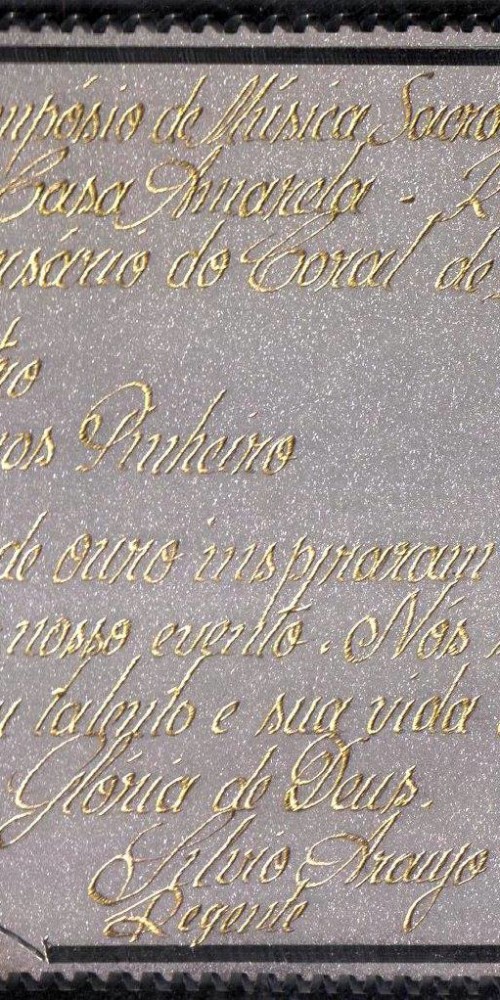 mpósio de Música Sacra
Casa Amarela - 2
rsário do Coral de
ro
ros Pinheiro
de ouro inspiraram
nosso evento. Nós
u talento e sua vida
Glória de Deus.
Silvio Araujo
Regente